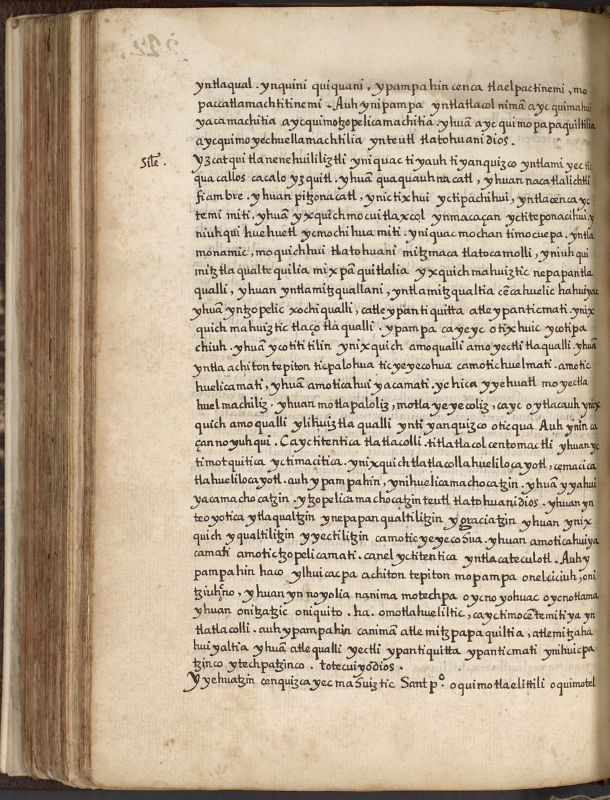 yntlaqual . ynquini quiquani, ypampa hin cenca tlaelpactinemi, mo
paccatlamachtitinemi . Auh ynipampa yntlatlacol nimā ayc quimahui
yacamachitia aycquimotzopelicamachitia . yhuā ayc quimopapaquiltilia
aycquimoyechuellamachtilia ynteutl tlatohuani dios .
Silē .
yzcatqui tlanenehuililiztli yniquac tiyauh tiyanquizco yntlami yectic
qua callos cacalo yzquitl . yhuā quaquauhnacatl, yhuan nacatlalichtli
fiambre . yhuan pitzonacatl, ynictixhui yctipachihui, yntlacenca yc
temi miti, yhuā yxquichmocuitlaxcol ynmacaçan yctiteponacihui, y
niuhqui huehuetl ycmochihua miti . yniquac mochan timocuepa . yntla
monamic, moquichhui tlatohuani mitzmaca tlatocamolli, yniuhqui
mitztlaqualtequilia mixpā quitlalia yxquich mahuiztic nepapantla
qualli, yhuan yntlamitzquallani, yntlamitzqualtia cēcahuelic hahuiyac
yhuā yntzopelic xochiqualli, catle ypantiquitta atle ypanticmati . ynix
quich mahuiztic tlaço tlaqualli . ypampa cayeyc otixhuic ycotipa
chiuh . yhuā ycotitilin ynixquich amoqualli amo yectli tlaqualli . yhuā
yntla achiton tepiton ticpalohua ticyeyecohua camotichuelmati . amotic
huelicamati, yhuā amoticahuiyacamati . yehica yyehuatl moyectla
huelmachiliz . yhuan motlapaloliz, motlayeyecoliz, cayc oytlacauh ynix
quich amoqualli ylihuiztlaqualli ynti yanquizco oticqua Auh ynin ca
çannoyuhqui . Cayctitentica tlatlacolli . titlatlacolcentomactli yhuan yc
timotquitica yctimacitica . ynixquich tlatlacollahuelilocayotl, cemacica
tlahuelilocayotl . auh ypampahin, ynihuelicamachocatzin . yhuā yyahui
yacamachocatzin . ytzopelicamachocatzinteutl tlatohuanidios . yhuan yn
teoyotica ytlaqualtzin ynepapanqualtiliztin ygraciatzin yhuan ynix
quich yqualtiliztin yyectiliztin camoticyeyecohua . yhuan amoticahuiya
camati amotictzopelicamati . canel yctitentica yntlacateculotl . Auh y
pampahin haco ylhuicacpa achiton tepiton mopampa onelciciuh, oni
yhuan ynnoyolia nanima motechpa oycnoyohuac oycnotlama
yhuan onitzatzic oniquito . ha . omotlahueliltic, cayctimocētemitiya yn
tlatlacolli . auh ypampahin canimā atle mitzpapaquiltia, atlemitzaha
huiyaltia yhuā atlequalli yectli ypantiquitta ypanticmati ynihuicpa
tzinco ytechpatzinco . totecuiyodios .
Yyehuatzin cenquizcayecmahuiztic Sant pº. oquimotlaelittili oquimotel